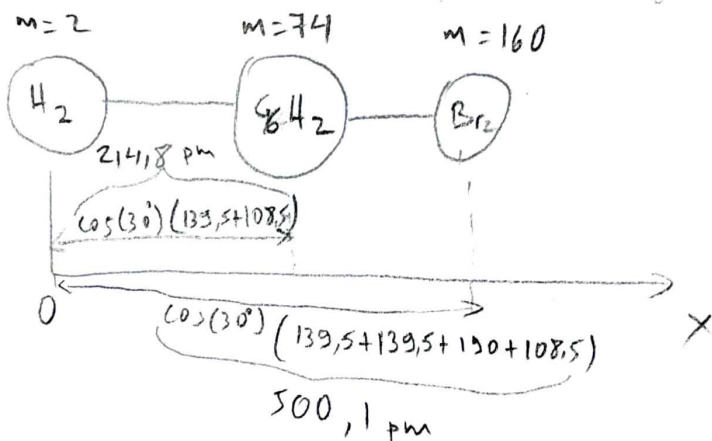 m=2 m=74 m=160
H2 C6H2 Br2
214,8 pm
cos(30°)(139,5+108,5)
0 X
cos(30°)(139,5+139,5+190+108,5)
500,1 pm